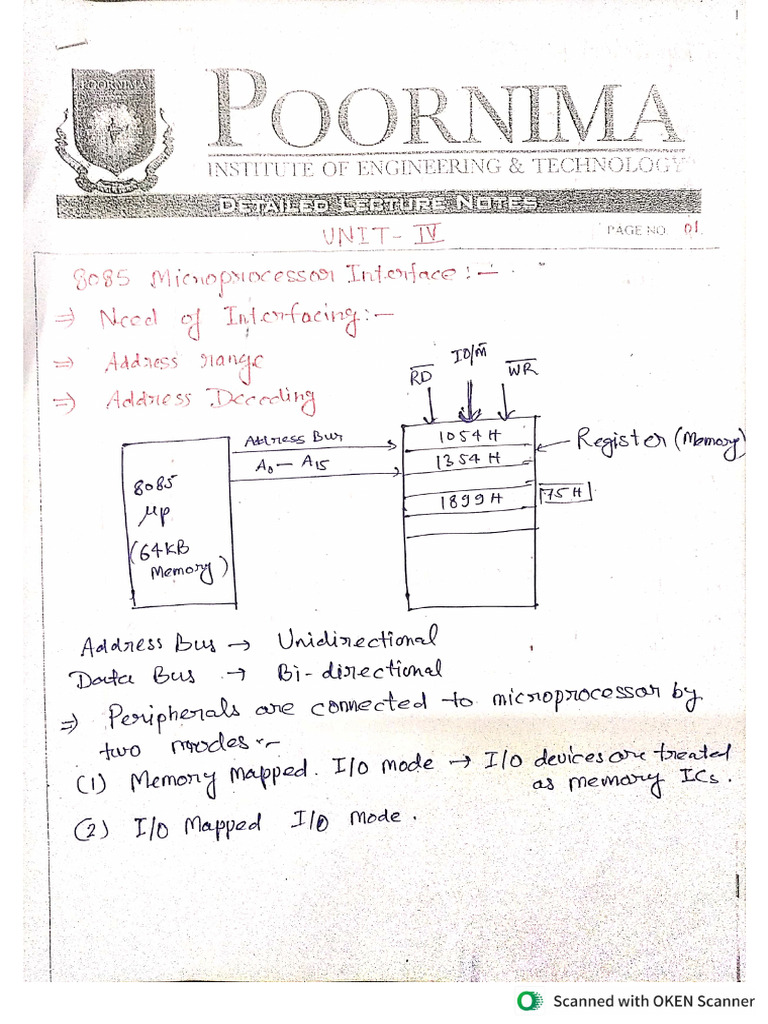 POORNIMA
POORNIMA
INSTITUTE OF ENGINEERING & TECHNOLOGY
DETAILED LECTURE NOTES
UNIT-IV
PAGE NO. 01.
8085 Microprocessor Interface:-.
⇒ Need of Interfacing:-
⇒ Address range
⇒ Address Decoding
R̅D̅ IO/M̅ W̅R̅
8085
μp
(64KB
Memory)
Address Bus
A₀ — A₁₅
1054 H
1354 H
1899 H
75H
Register (Memory)
Address Bus → Unidirectional
Data Bus → Bi-directional
⇒ Peripherals are connected to microprocessor by
two modes:-
(1) Memory Mapped. I/O mode → I/O devices are treated
as memory ICs.
(2) I/O Mapped I/O mode.
Scanned with OKEN Scanner